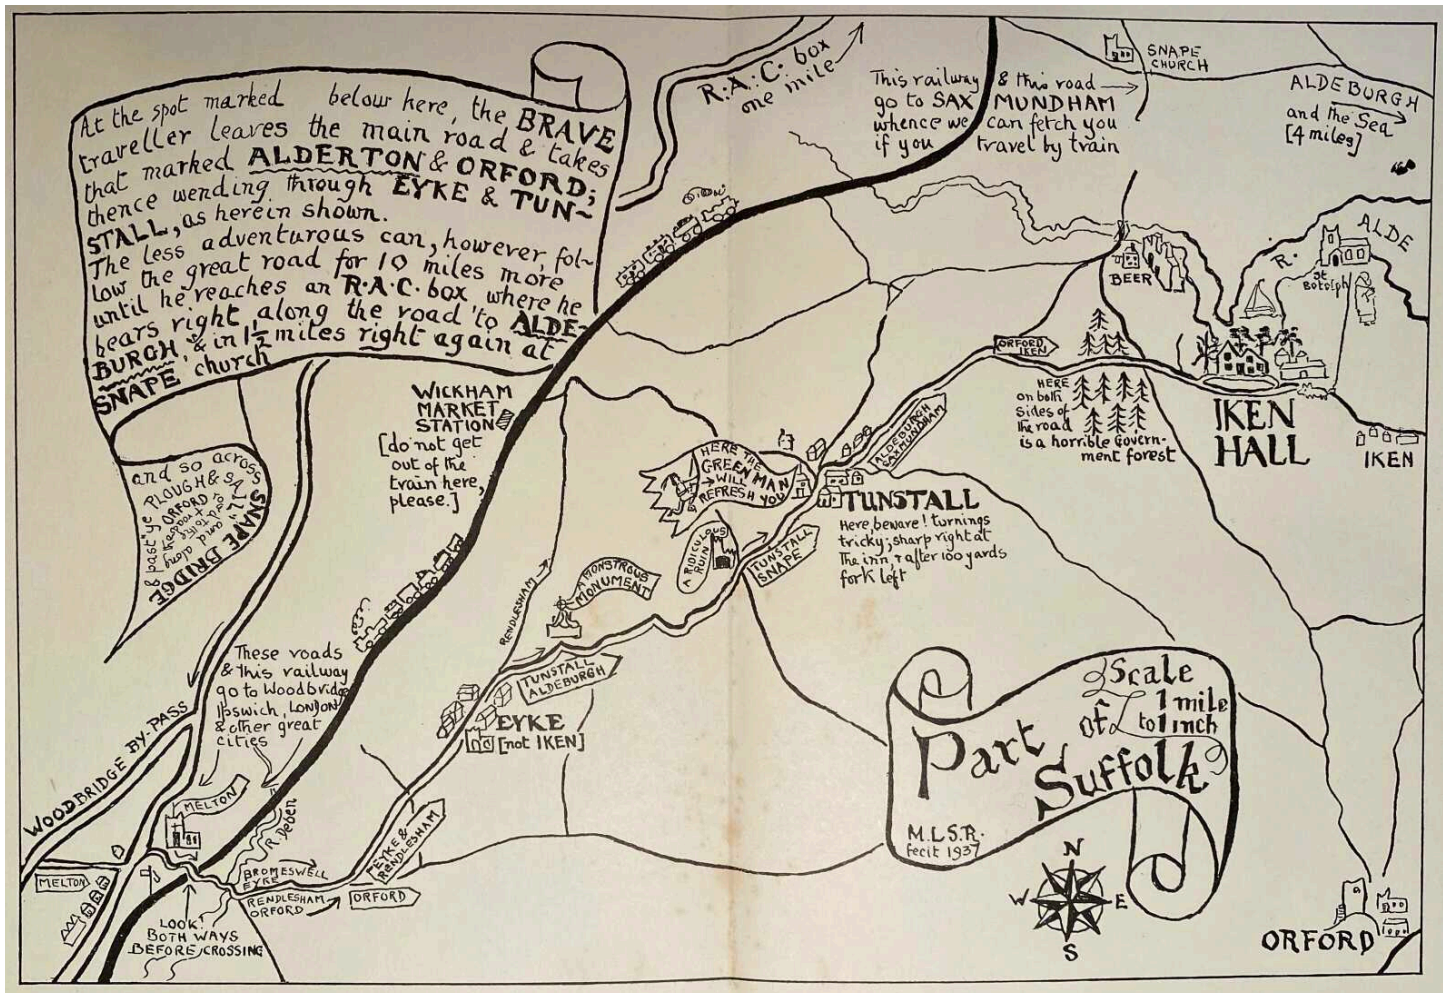 At the spot marked below here, the BRAVE
traveller leaves the main road & takes
that marked ALDERTON & ORFORD;
thence wending through EYKE & TUN~
STALL, as herein shown.
The less adventurous can, however, fol~
low the great road for 10 miles more
until he reaches an R·A·C· box, where he
bears right along the road to ALDE-
BURGH, & in 1½ miles right again at
SNAPE church
and so across
SNAPE BRIDGE
& past "ye PLOUGH & SAIL",
and along
road to
ORFORD
R·A·C· box
one mile
This railway & this road
go to SAXMUNDHAM
whence we can fetch you
if you travel by train
SNAPE
CHURCH
ALDEBURGH
and the Sea
[4 miles]
BEER
R. ALDE
St
Botolph
ORFORD
IKEN
HERE
on both
sides of
the road
is a horrible Govern-
ment forest
IKEN
HALL
IKEN
WICKHAM
MARKET
STATION
[do not get
out of the
train here,
please.]
HERE THE
GREEN MAN
WILL
REFRESH YOU
ALDEBURGH
SAXMUNDHAM
TUNSTALL
Here, beware! turnings
tricky; sharp right at
the inn, & after 100 yards
fork left
A RIDICULOUS
RUIN
TUNSTALL
SNAPE
A MONSTROUS
MONUMENT
RENDLESHAM
TUNSTALL
ALDEBURGH
EYKE
[not IKEN]
These roads
& this railway
go to Woodbridge
Ipswich, LONDON
& other great
cities
WOODBRIDGE BY-PASS
MELTON
R. Deben
EYKE &
RENDLESHAM
MELTON
BROMESWELL
EYKE
RENDLESHAM
ORFORD
ORFORD
LOOK!
BOTH WAYS
BEFORE CROSSING
Scale
of 1 mile
to 1 inch
Part
Suffolk
M.L.S.R.
fecit 1937
N
W E
S
ORFORD